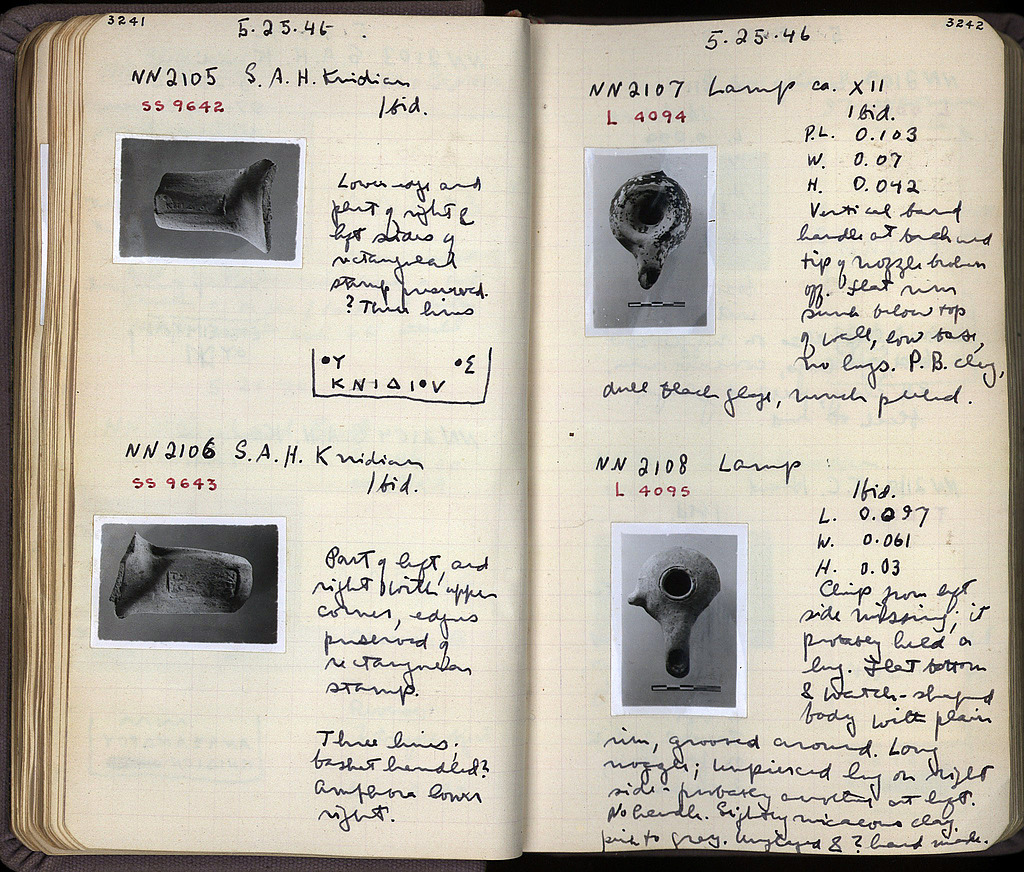 3241
5.25.46.
NN2105 S.A.H. Knidian
SS 9642 Ibid.
Lower edge and
part of right &
left sides of
rectangular
stamp preserved.
? Three lines
•Y •Σ
KNIΔI•V
NN2106 S.A.H. Knidian
SS 9643 Ibid.
Part of left, and
right with upper
corner, edges
preserved of
rectangular
stamp.
Three lines.
basket handled?
Amphora lower
right.
3242
5.25.46
NN2107 Lamp ca. XII
L 4094 Ibid.
P.L. 0.103
W. 0.07
H. 0.042
Vertical band
handle at back and
tip of nozzle broken
off. Flat rim
sunk below top
of wall, low base,
no lugs. P.B. clay,
dull black glaze, much peeled.
NN 2108 Lamp
L 4095 Ibid.
L. 0.097
W. 0.061
H. 0.03
Chip from left
side missing; it
probably held a
lug. Flat bottom
& watch-shaped
body with plain
rim, grooved around. Long
nozzle; unpierced lug on right
side - probably another at left.
No handle. Slightly micaceous clay
pink to gray. Unglazed & ? hand made.